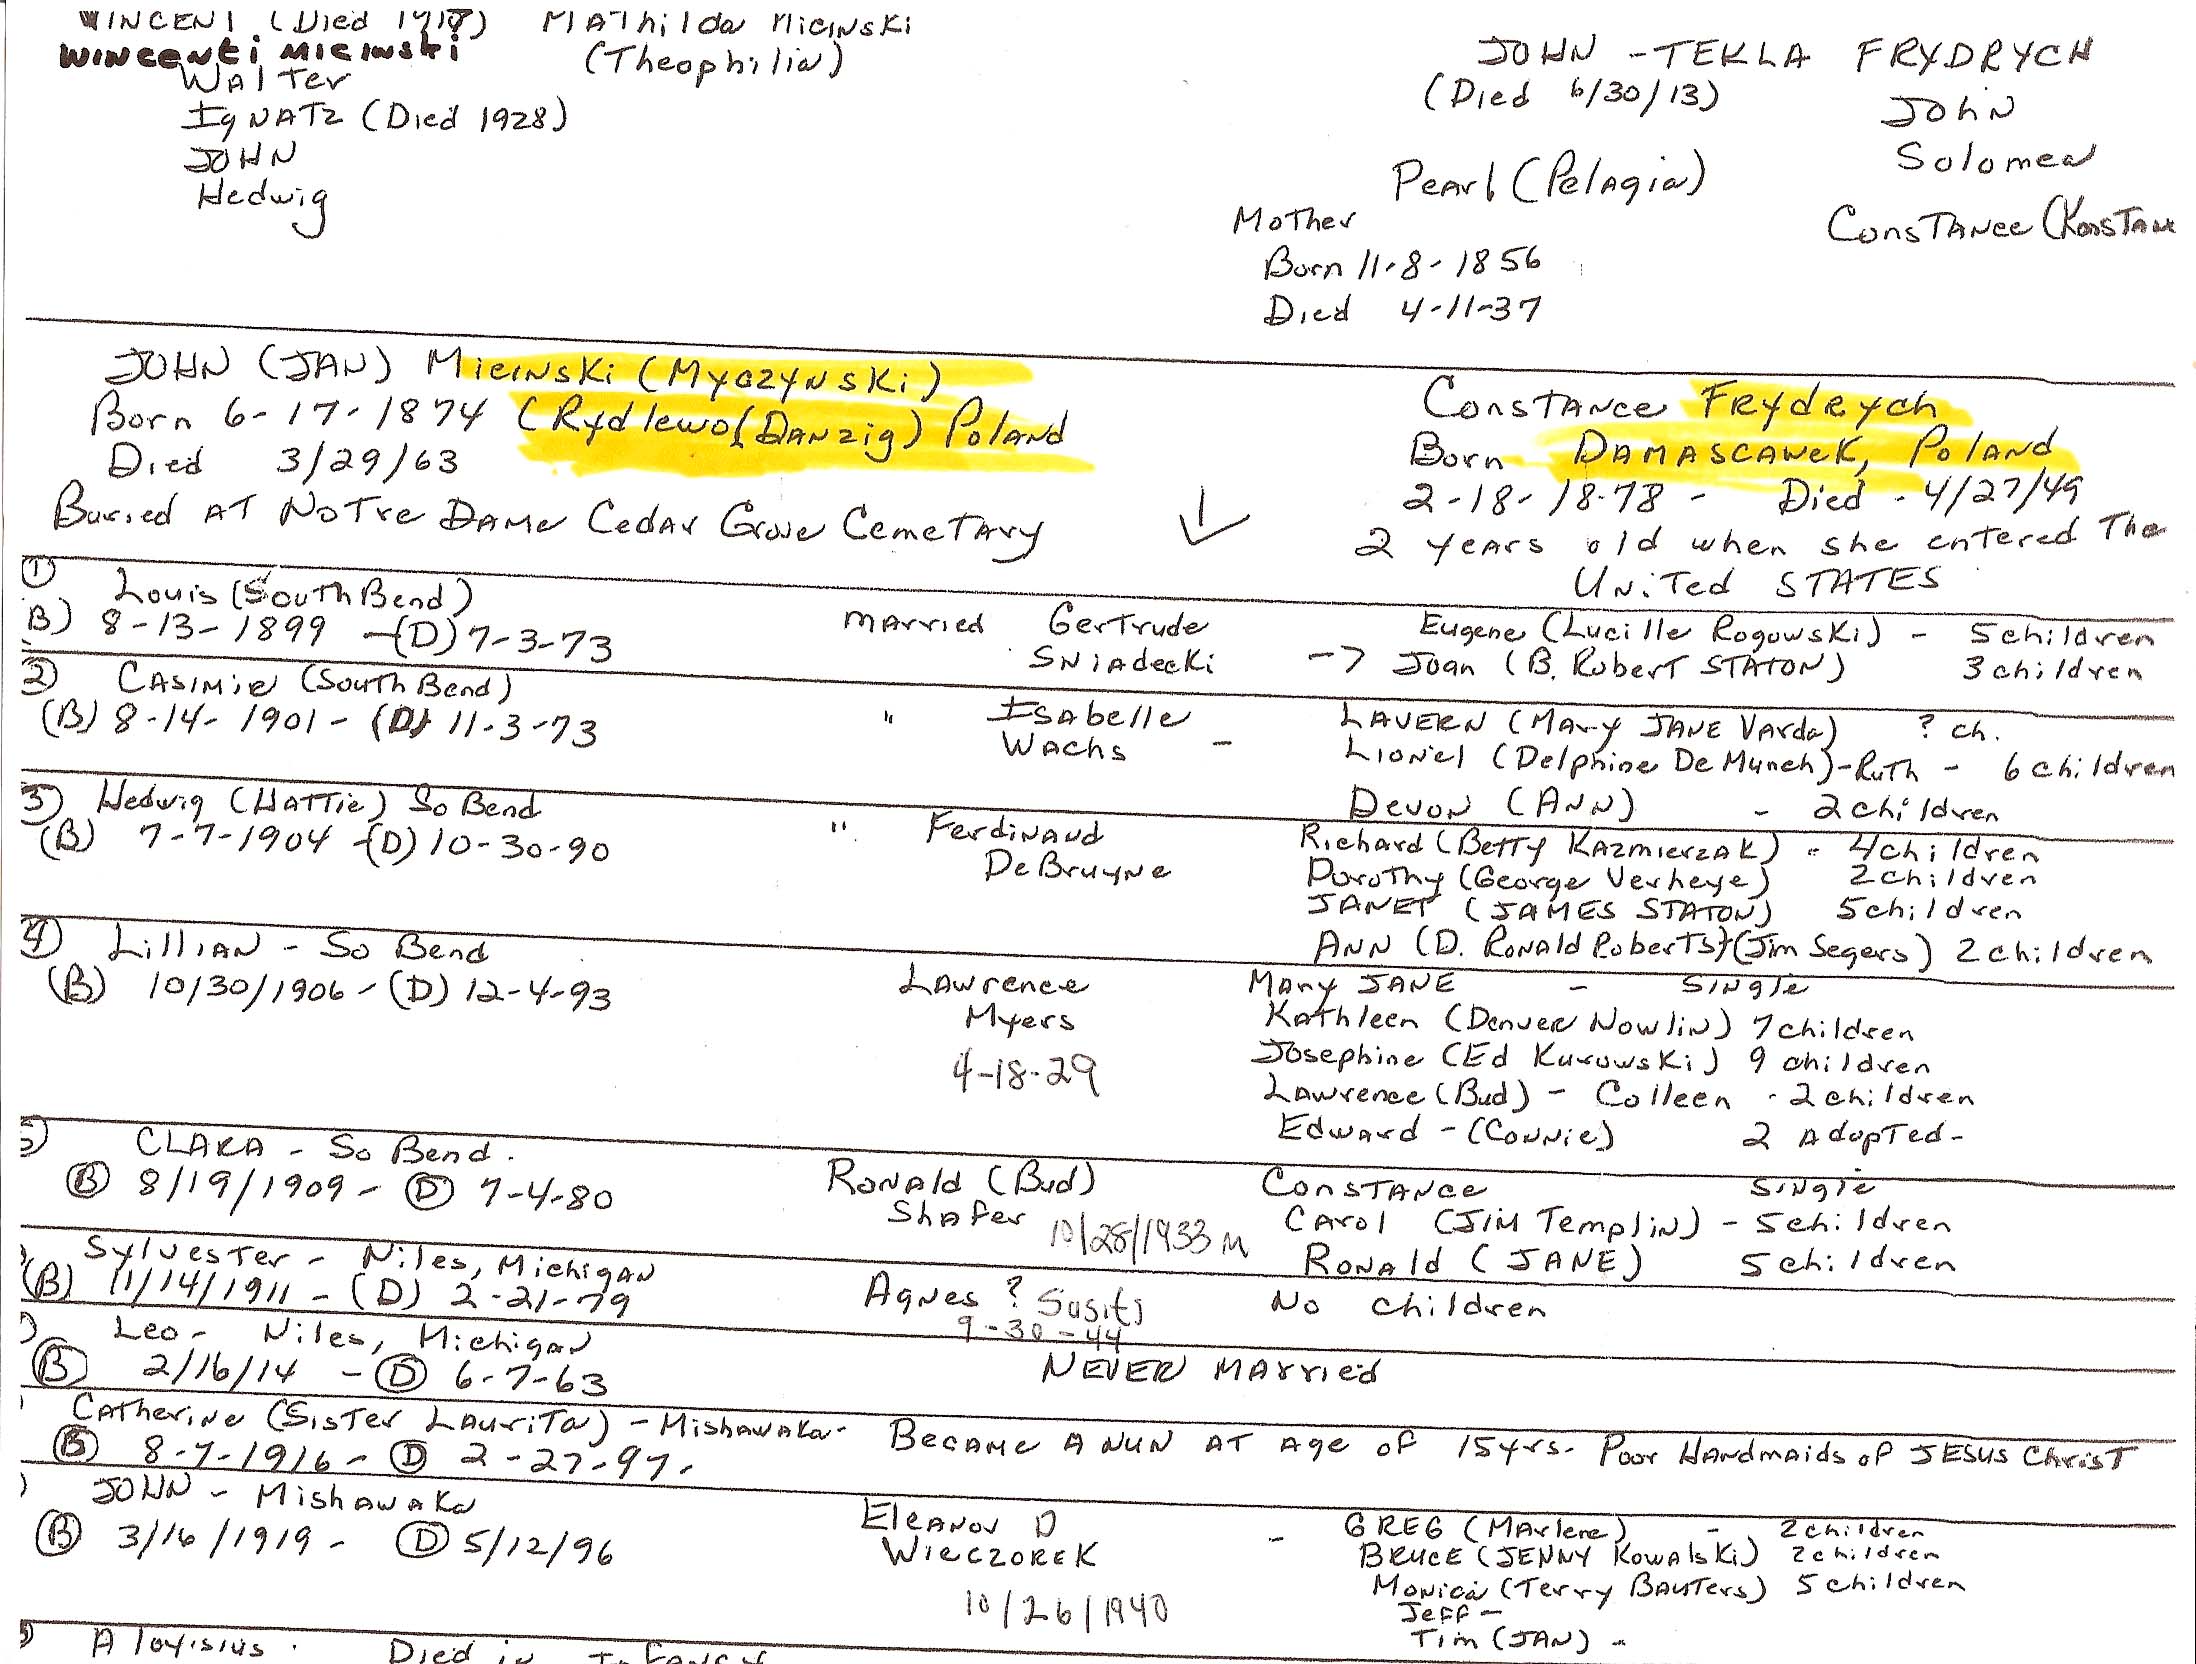 VINCENT (Died 1917) MAThilda Micinski
WINCENti MICINSKi (Theophilia)
Walter
IgNATZ (Died 1928)
JOHN
Hedwig
JOHN - TEKLA FRYDRYCH
(Died 6/30/13) John
Solomea
Pearl (Pelagia)
Constance (Konstan
Mother
Born 11-8-1856
Died 4-11-37
JOHN (JAN) Micinski (Myczynski)
Born 6-17-1874 (Rydlewo (Danzig) Poland
Died 3/29/63
Buried AT Notre Dame Cedar Grove Cemetary
Constance Frydrych
Born Damascawek, Poland
2-18-1878 - Died - 4/27/49
2 years old when she entered The
United STATES
① Louis (South Bend)
B) 8-13-1899 - (D) 7-3-73
married Gertrude
Sniadecki
Eugene (Lucille Rogowski) - 5 children
-> Joan (B. Robert STATON) 3 children
② CASIMIR (South Bend)
(B) 8-14-1901 - (D) 11-3-73
" Isabelle
Wachs -
LAVERN (Mary JANE Varda) ? ch.
Lionel (Delphine DeMunch) - Ruth - 6 children
Devon (Ann) - 2 children
③ Hedwig (Hattie) So Bend
(B) 7-7-1904 - (D) 10-30-90
" Ferdinand
DeBruyne
Richard (Betty Kazmierzak) - 4 children
Dorothy (George Verheye) 2 children
JANET (JAMES STATON) 5 children
Ann (D. Ronald Roberts) + (Jim Segers) 2 children
④ Lillian - So Bend
(B) 10/30/1906 - (D) 12-4-93
Lawrence
Myers
4-18-29
Mary JANE - Single
Kathleen (Denver Nowlin) 7 children
Josephine (Ed Kurowski) 9 children
Lawrence (Bud) - Colleen - 2 children
Edward - (Connie) 2 Adopted -
5) CLARA - So Bend.
Ⓑ 8/19/1909 - Ⓓ 7-4-80
Ronald (Bud)
Shafer 10/28/1933 m
Constance Single
Carol (Jim Templin) - 5 children
Ronald (JANE) 5 children
) Sylvester - Niles, Michigan
(B) 11/14/1911 - (D) 2-21-79
Agnes ? Susits
9-30-44
No children
) Leo - Niles, Michigan
Ⓑ 2/16/14 - Ⓓ 6-7-63
NEVER MArried
) Catherine (Sister Laurita) - Mishawaka - Became A NUN AT Age of 15 yrs. Poor Handmaids of JESUS Christ
Ⓑ 8-7-1916 - Ⓓ 2-27-97.
) JOHN - Mishawaka
Ⓑ 3/16/1919 - Ⓓ 5/12/96
Eleanor D
Wieczorek -
10/26/1940
GREG (Marlene) - 2 children
BRUCE (JENNY Kowalski) 2 children
Monica (Terry Bauters) 5 children
Jeff -
Tim (JAN) -
) Aloysius. Died in Infancy